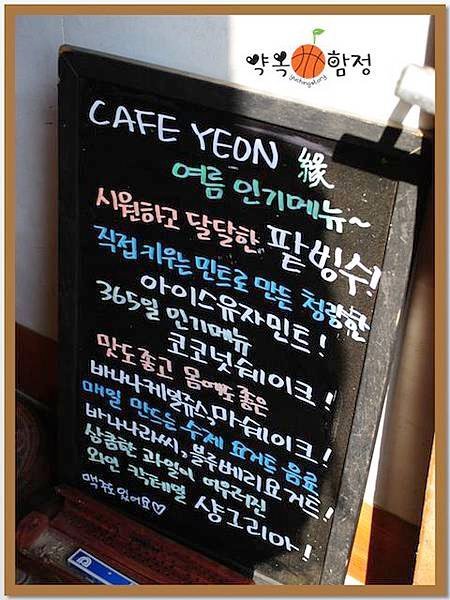 약옥 함정
CAFE YEON 緣
여름 인기메뉴~
시원하고 달달한 팥빙수!
직접 키우는 민트로 만든 청량한
아이스유자민트!
365일 인기메뉴
코코넛쉐이크!
맛도좋고 몸에도좋은
바나나케일쥬스, 마쉐이크!
매일 만드는 수제 요거트 음료
바나나라씨, 블루베리요거트!
상큼한 과일이 어우러진
와인 칵테일 샹그리아!
맥주도 있어요♡